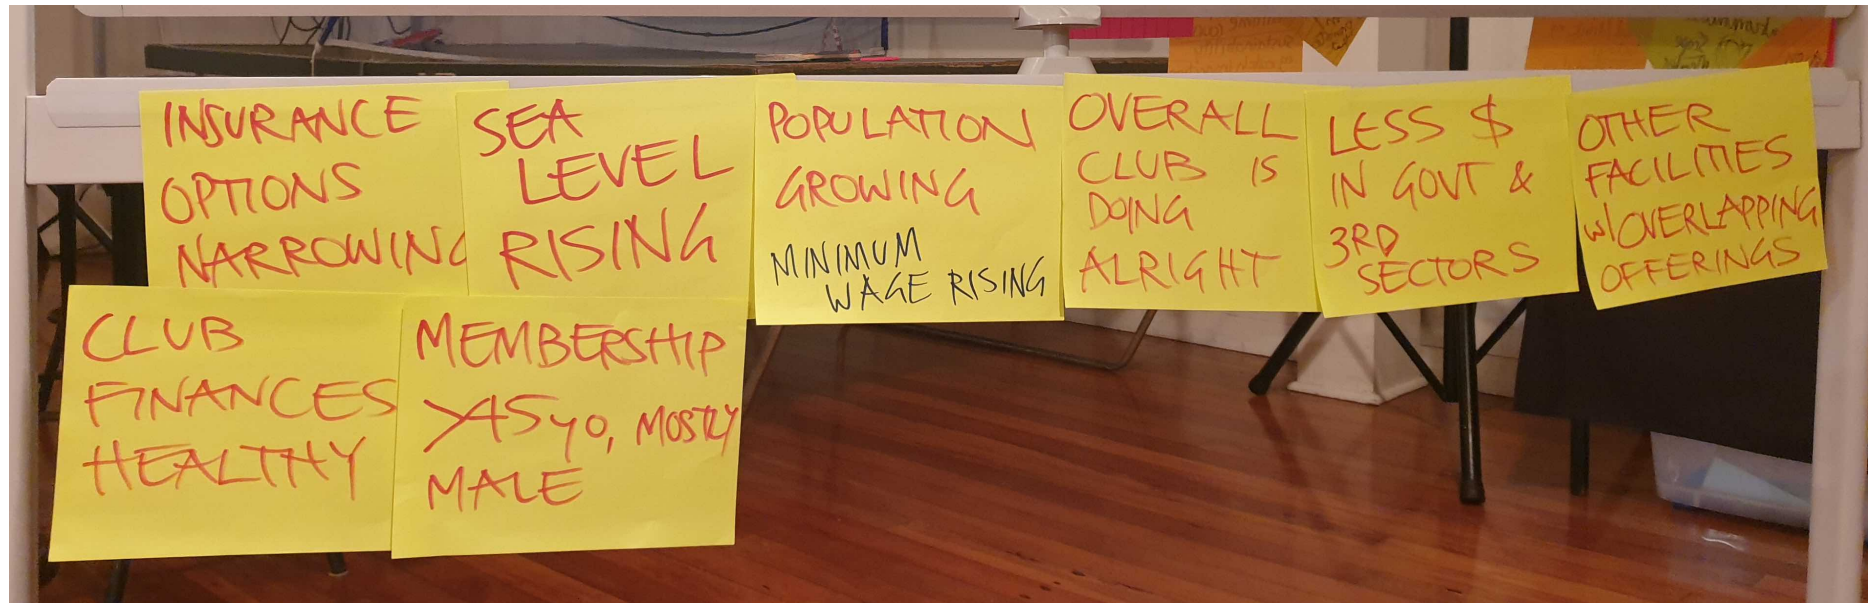 INSURANCE
OPTIONS
NARROWING
SEA
LEVEL
RISING
POPULATION
GROWING
MINIMUM
WAGE RISING
OVERALL
CLUB IS
DOING
ALRIGHT
LESS $
IN GOVT &
3RD
SECTORS
OTHER
FACILITIES
w/OVERLAPPING
OFFERINGS
CLUB
FINANCES
HEALTHY
MEMBERSHIP
>45yo, MOSTLY
MALE